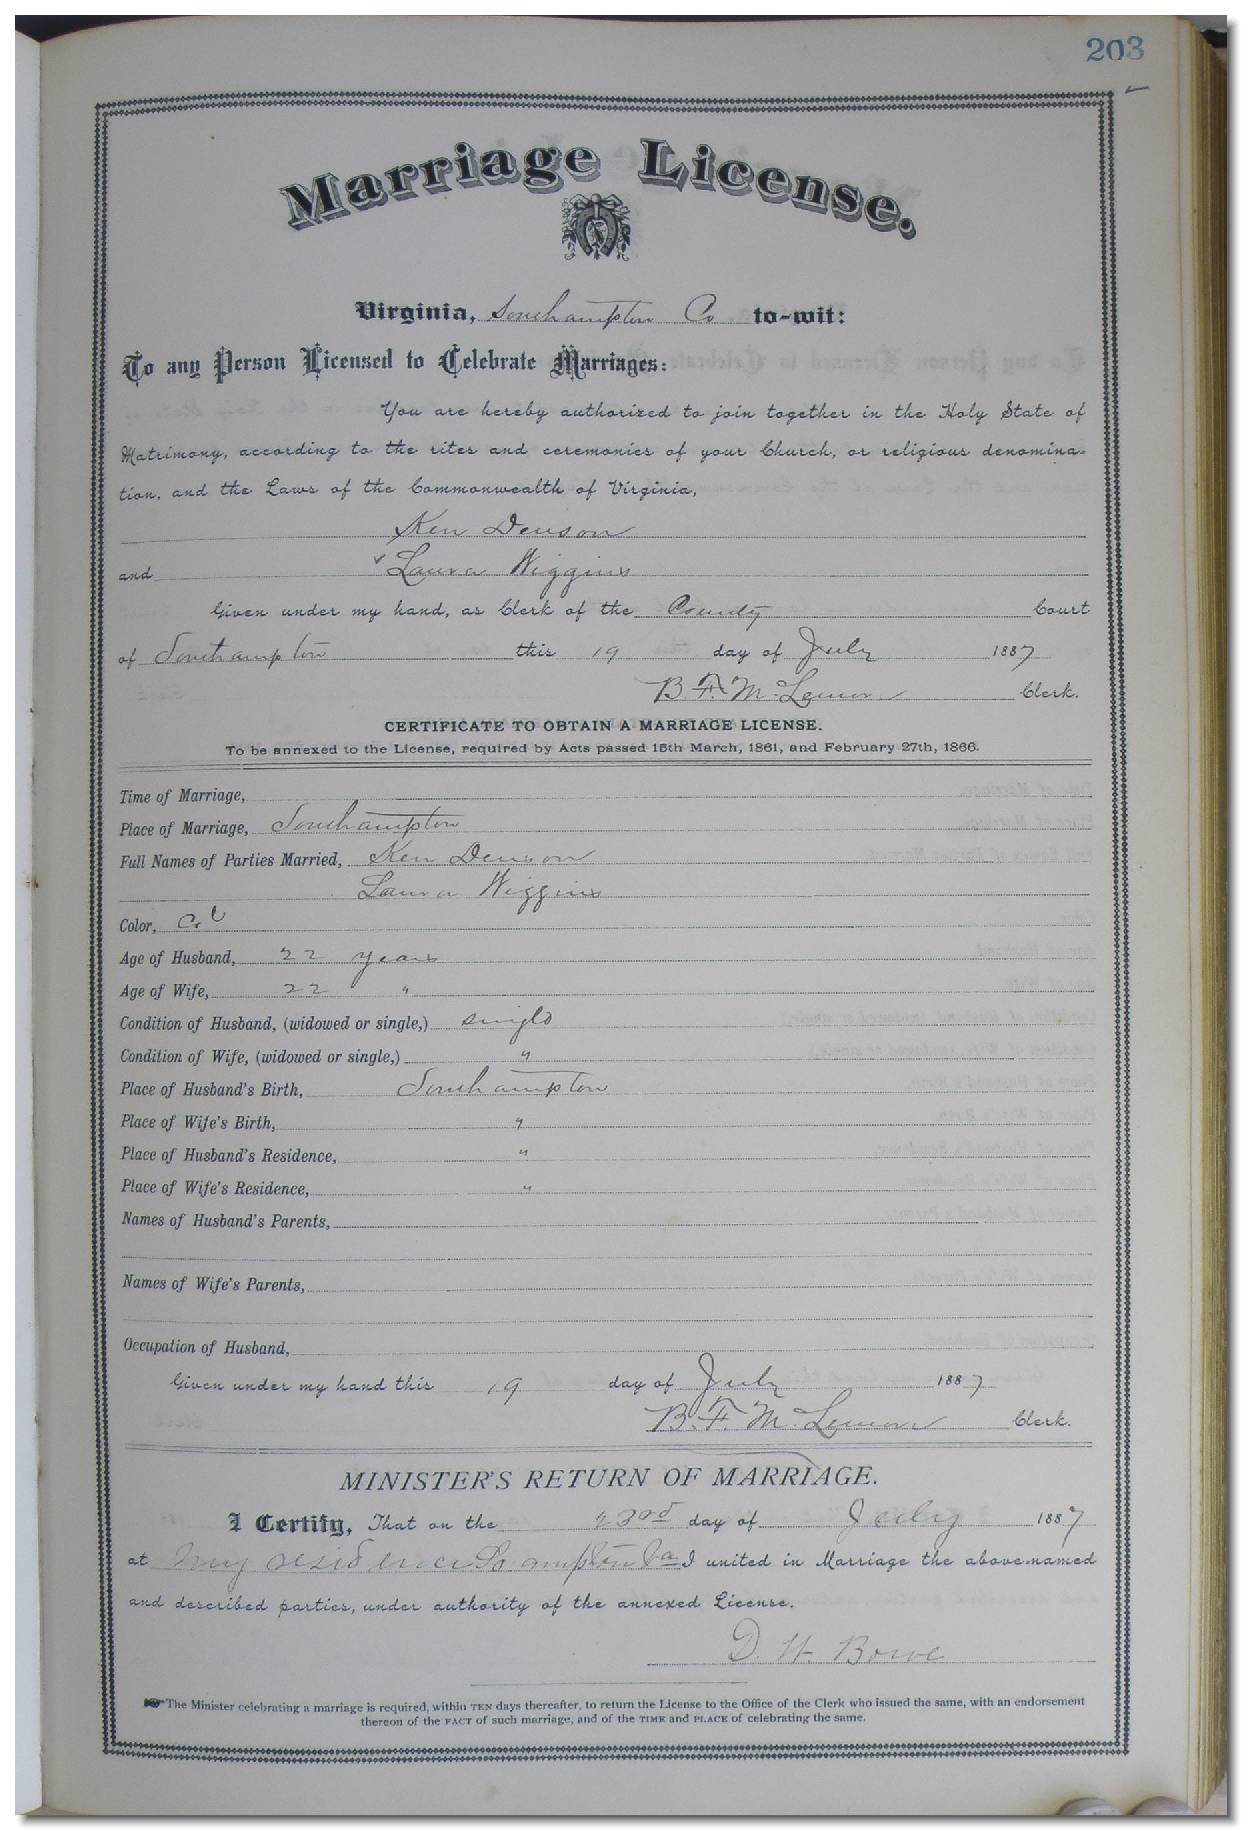 203
Marriage License.
Virginia, Southampton Co to-wit:
To any Person Licensed to Celebrate Marriages:
You are hereby authorized to join together in the Holy State of
Matrimony, according to the rites and ceremonies of your Church, or religious denomina-
tion, and the Laws of the Commonwealth of Virginia,
Ken Denson
and Laura Wiggins
Given under my hand, as Clerk of the County Court
of Southampton this 19 day of July 1887
B. F. McLemore Clerk.
CERTIFICATE TO OBTAIN A MARRIAGE LICENSE.
To be annexed to the License, required by Acts passed 15th March, 1861, and February 27th, 1866.
Time of Marriage,
Place of Marriage, Southampton
Full Names of Parties Married, Ken Denson
Laura Wiggins
Color, Col
Age of Husband, 22 years
Age of Wife, 22 "
Condition of Husband, (widowed or single,) single
Condition of Wife, (widowed or single,) "
Place of Husband's Birth, Southampton
Place of Wife's Birth, "
Place of Husband's Residence, "
Place of Wife's Residence, "
Names of Husband's Parents,
Names of Wife's Parents,
Occupation of Husband,
Given under my hand this 19 day of July 1887
B. F. McLemore Clerk.
MINISTER'S RETURN OF MARRIAGE.
I Certify, That on the 23rd day of July 1887
at my residence So ampton Va I united in Marriage the above-named
and described parties, under authority of the annexed License.
D. W. Bowe
The Minister celebrating a marriage is required, within TEN days thereafter, to return the License to the Office of the Clerk who issued the same, with an endorsement
thereon of the FACT of such marriage, and of the TIME and PLACE of celebrating the same.